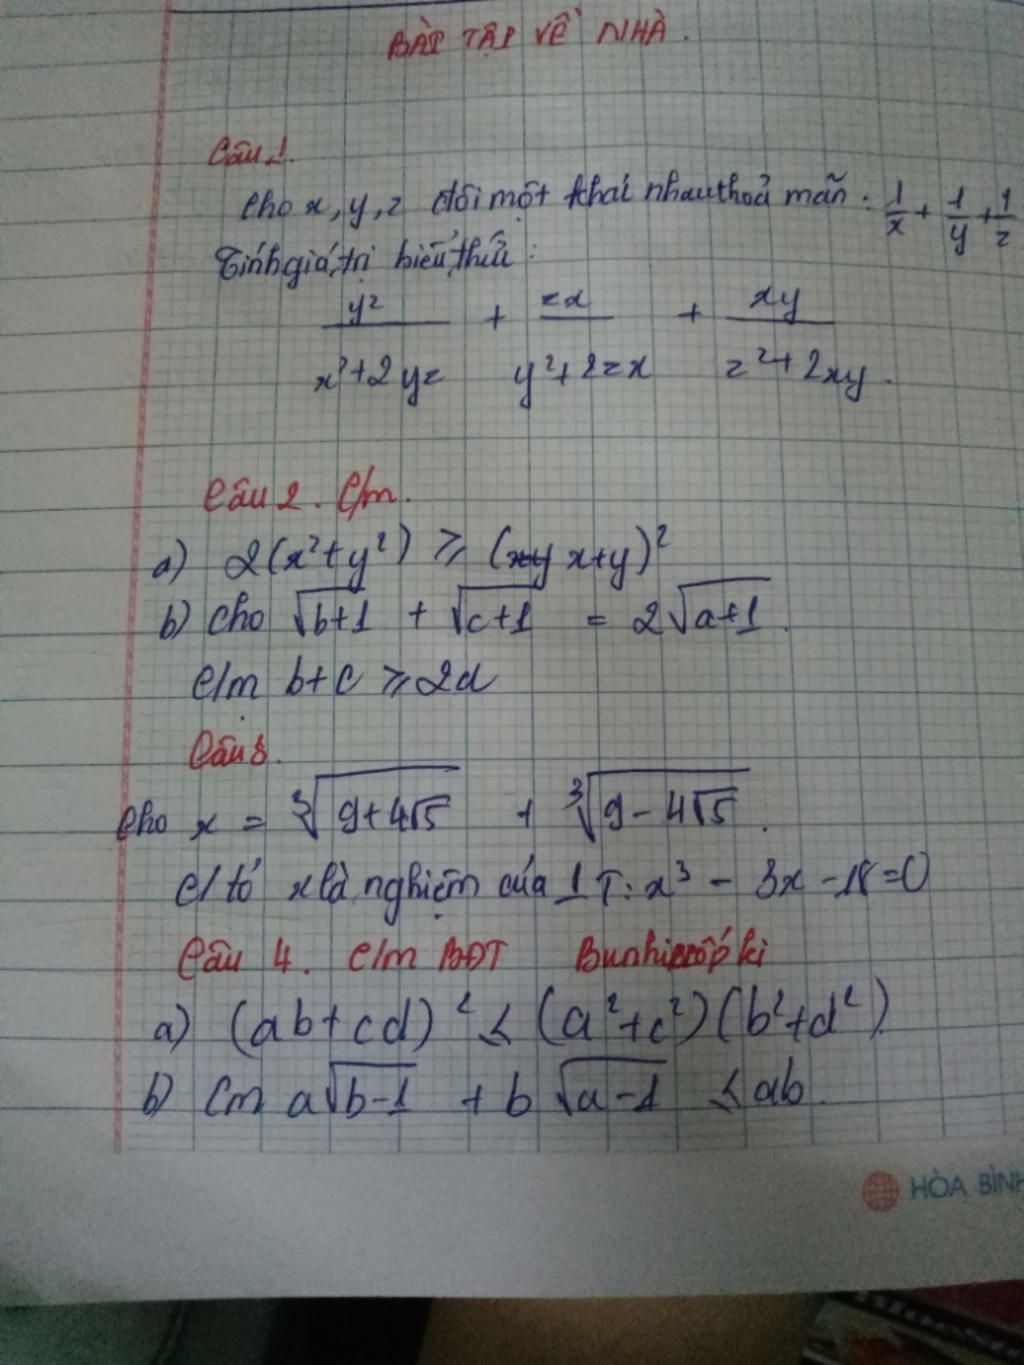 BÀI TẬP VỀ NHÀ.
Câu 1.
Cho x, y, z đôi một khác nhau thoả mãn: 1/x + 1/y + 1/z
Tính giá trị biểu thức:
yz/(x²+2yz) + zx/(y²+2zx) + xy/(z²+2xy).
Câu 2. C/m.
a) 2(x²+y²) ⩾ (x+y)²
b) Cho √(b+1) + √(c+1) = 2√(a+1).
C/m b+c ⩾ 2a
Câu 3.
Cho x = ∛(9+4√5) + ∛(9-4√5).
C/tỏ x là nghiệm của PT: x³ - 3x - 18 = 0
Câu 4. C/m BĐT Bunhiacốpki
a) (ab+cd)² ⩽ (a²+c²)(b²+d²)
b) Cm a√(b-1) + b√(a-1) ⩽ ab.
HÒA BÌNH